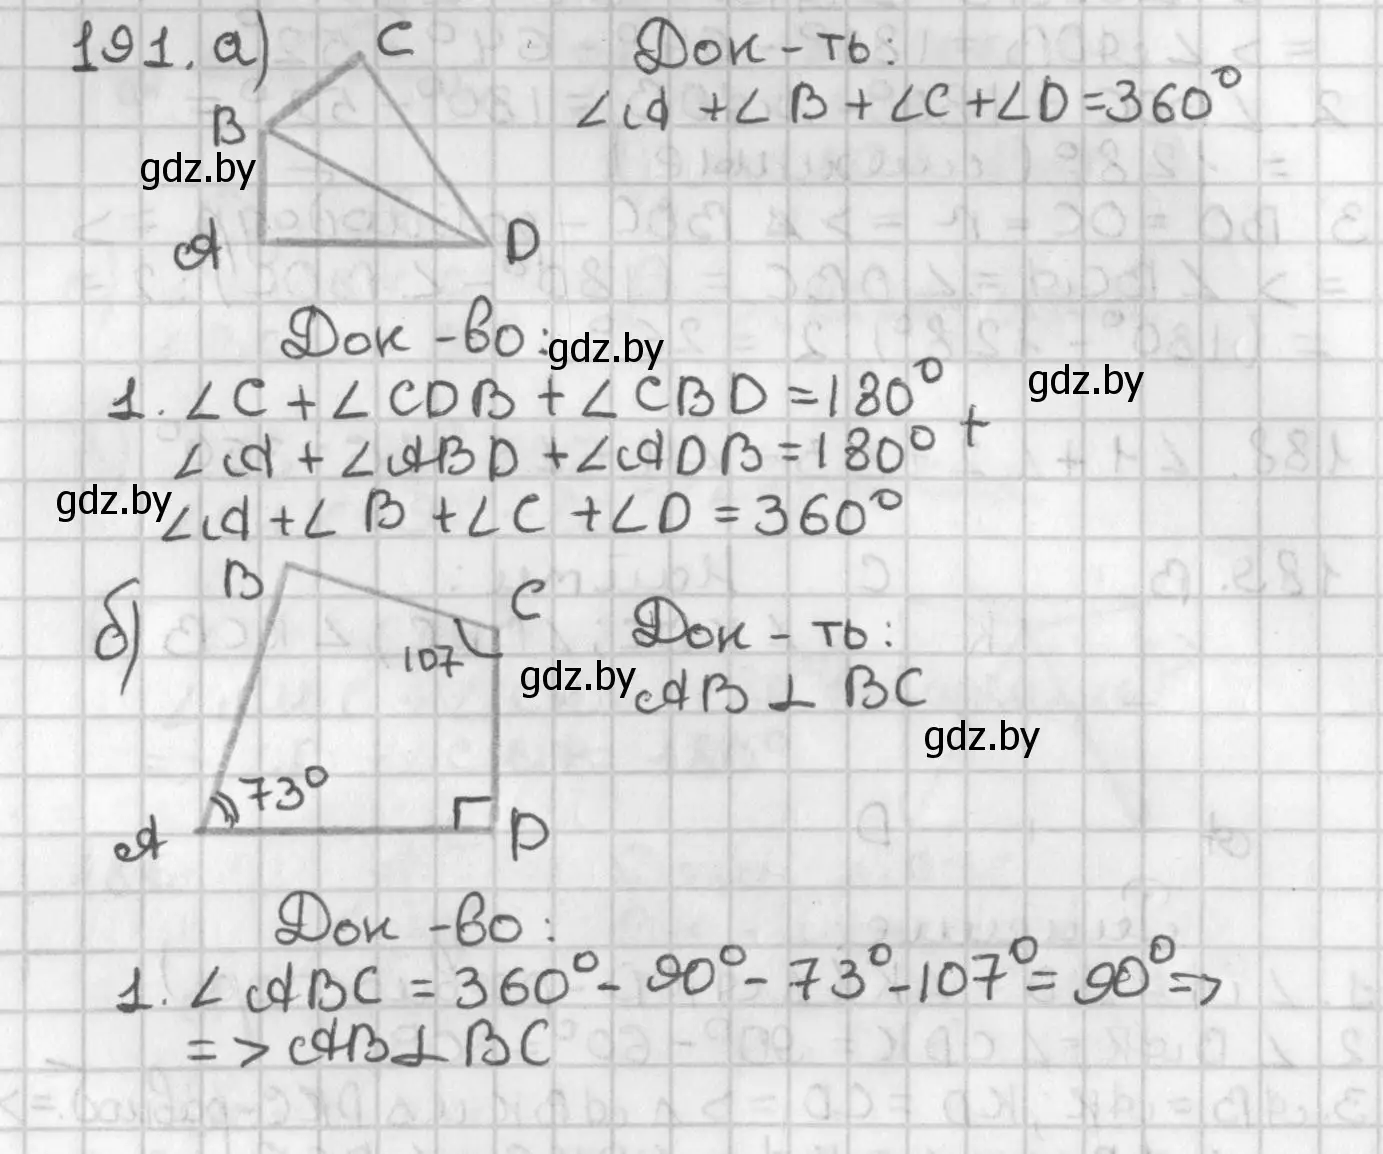 191. а)
C
B
A
D
Док-ть:
∠A + ∠B + ∠C + ∠D = 360°
gdz.by
Док-во:
gdz.by
1. ∠C + ∠CDB + ∠CBD = 180°
gdz.by
+
∠A + ∠ABD + ∠ADB = 180°
gdz.by
∠A + ∠B + ∠C + ∠D = 360°
б)
B
C
107
73°
A
D
Док-ть:
gdz.by
AB ⊥ BC
gdz.by
Док-во:
1. ∠ABC = 360° - 90° - 73° - 107° = 90° =>
=> AB ⊥ BC